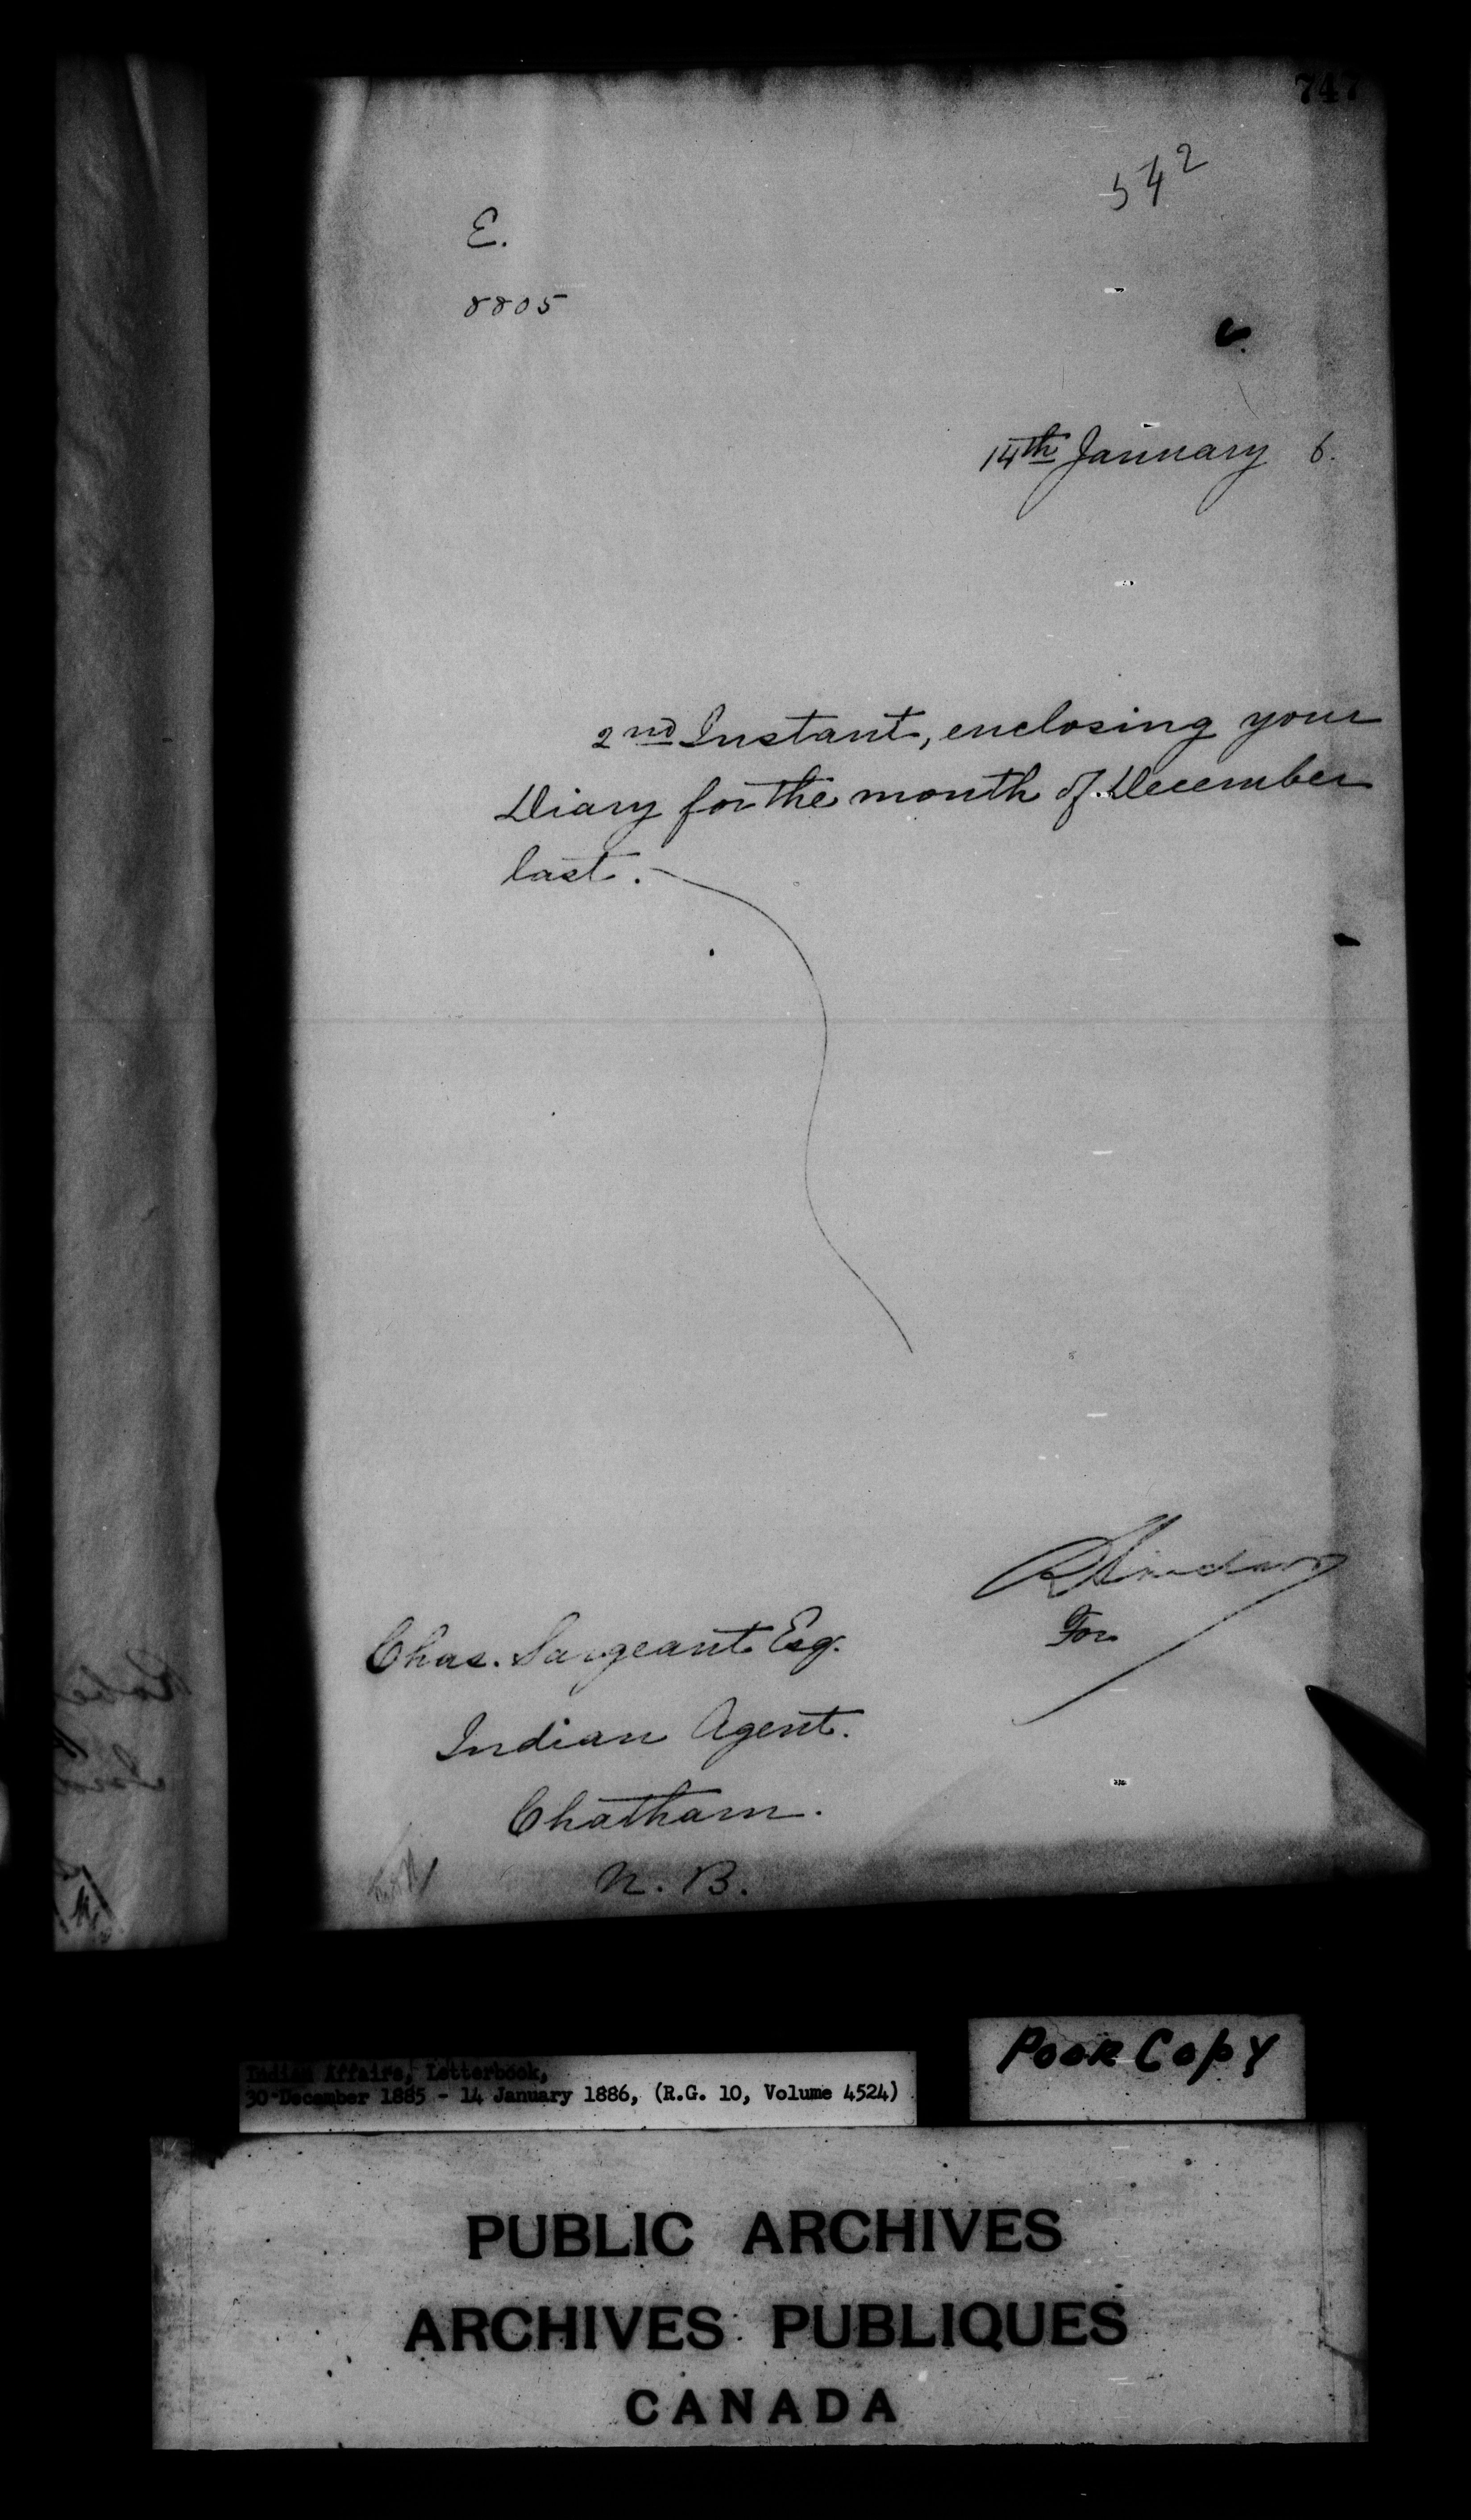 747
542
E.
8805
14th January 6.
2nd Instant, enclosing your
Diary for the month of December
last.
R Sinclair
For
Chas. Sargeant Esq.
Indian Agent.
Chatham.
N. B.
Indian Affairs, Letterbook,
30 December 1885 - 14 January 1886, (R.G. 10, Volume 4524)
Poor Copy
PUBLIC ARCHIVES
ARCHIVES PUBLIQUES
CANADA